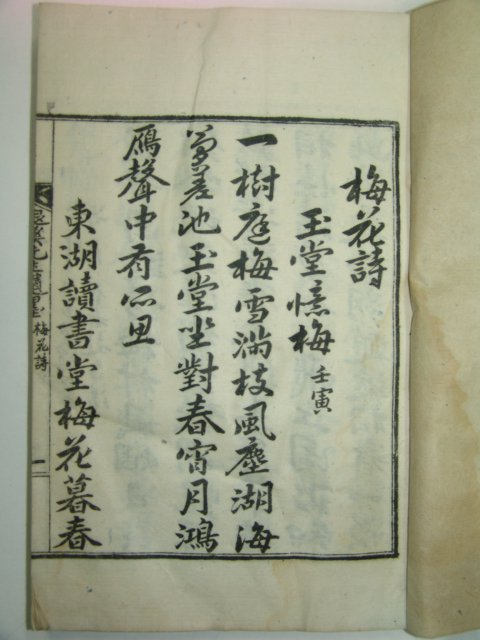 梅花詩
玉堂憶梅 壬寅
一樹庭梅雪滿枝風塵湖海
夢差池玉堂坐對春宵月鴻
鴈聲中有所思
東湖讀書堂梅花暮春
梅花詩
一